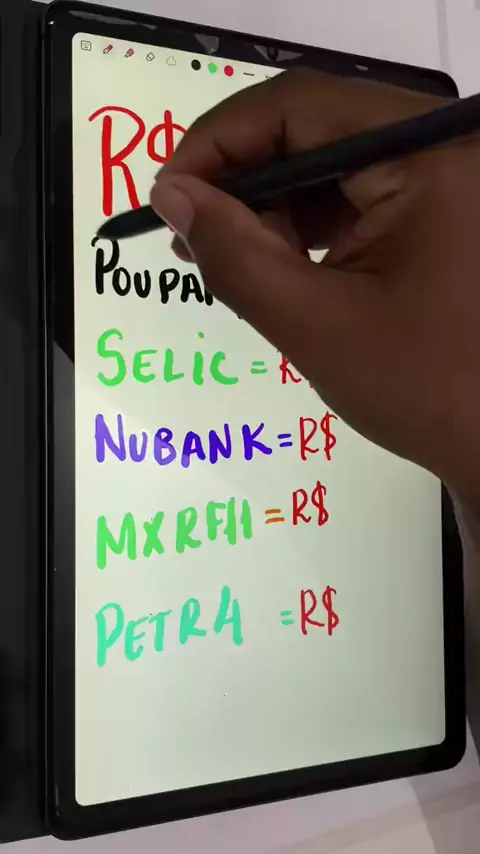 R$
SELIC = R$
NUBANK = R$
MXRF11 = R$
PETR4 = R$